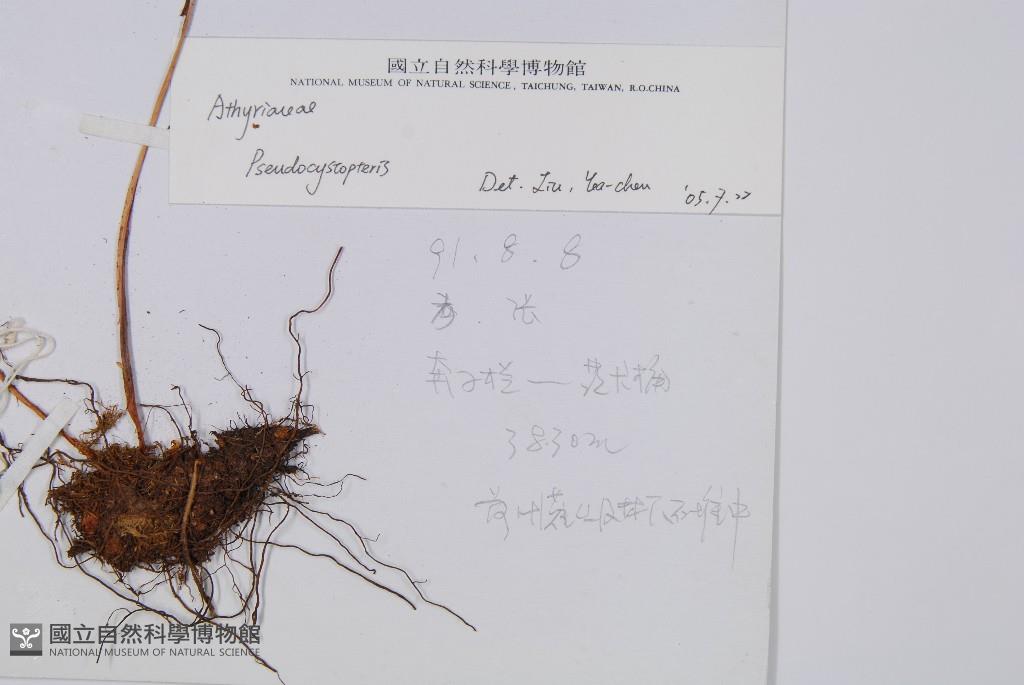 國立自然科學博物館
NATIONAL MUSEUM OF NATURAL SCIENCE, TAICHUNG, TAIWAN, R.O.CHINA
Athyriaceae
Pseudocystopteris
Det. Liu, Yea-chen '05.7.22
91.8.8
张
奔子栏 —
3830m
林下石堆中
國立自然科學博物館
NATIONAL MUSEUM OF NATURAL SCIENCE